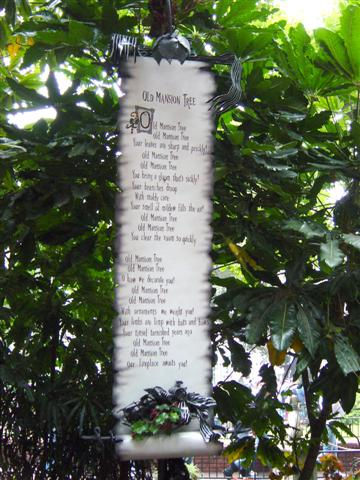 Old Mansion Tree
Old Mansion Tree
Old Mansion Tree
Your leaves are sharp and prickly!
Old Mansion Tree
Old Mansion Tree
You bring a gloom that's sickly!
Your branches droop
With moldy care
Your smell of mildew fills the air!
Old Mansion Tree
Old Mansion Tree
You clear the room so quickly
Old Mansion Tree
Old Mansion Tree
O how we decorate you!
Old Mansion Tree
Old Mansion Tree
With ornaments we weight you!
Your limbs are limp with bats and
Your tinsel tarnished years ago
Old Mansion Tree
Old Mansion Tree
Our fireplace awaits you!